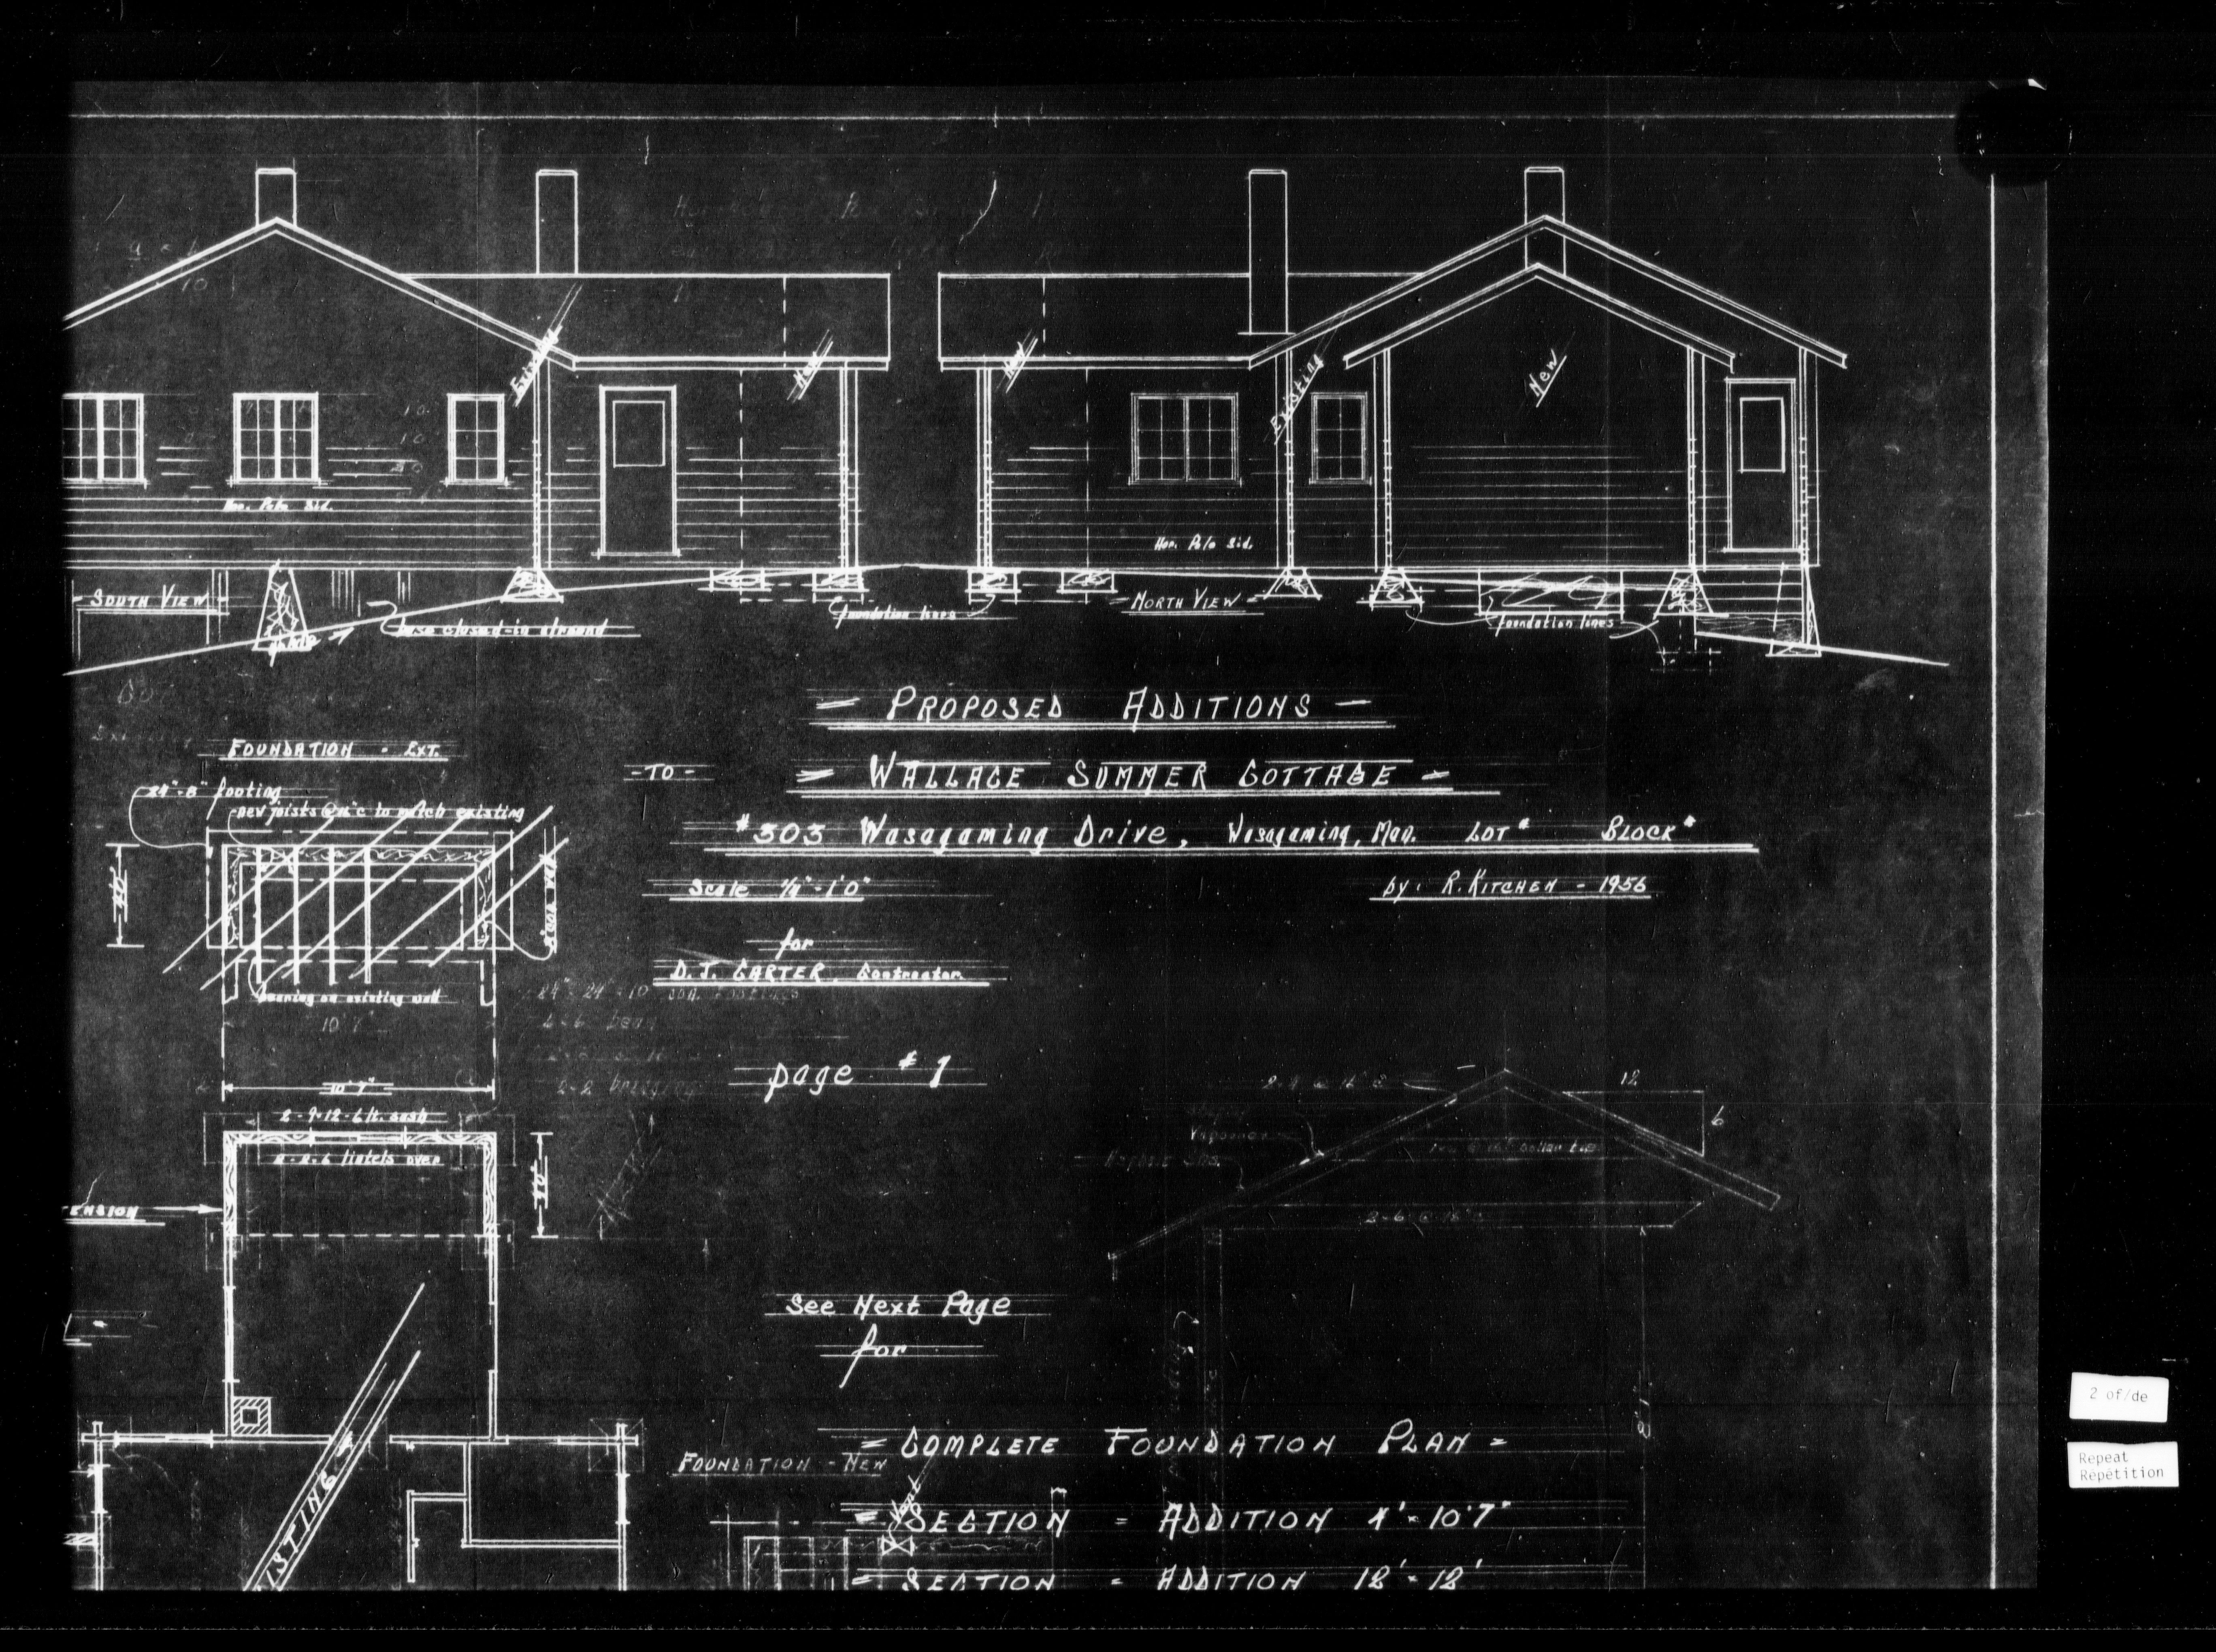 Existing
New
New
Existing
New
Hor. Polo Sid.
Hor. Polo Sid.
- SOUTH VIEW -
grade
base closed-in around
foundation lines
= NORTH VIEW =
foundation lines
= PROPOSED ADDITIONS =
- TO -
= WALLACE SUMMER COTTAGE =
#303 Wasagaming Drive, Wasagaming, Man. LOT # BLOCK #
Scale 1/4" - 1'0"
by: R. KITCHEN - 1956
for
D. J. CARTER, Contractor
page #1
FOUNDATION - EXT.
24" - 8" footing
new joists @ 16" c to match existing
4'0"
bearing on existing wall
10' 7"
10' 7"
24" - 24" - 10
2-9-12-6 lt. sash
2-2-6 lintels over
4'0"
ENSION
ISTING
2-2 bridging
12
6
Asphalt Shs.
collar ties
2-6 @ 16" c
8'1"
See Next Page
for
= COMPLETE FOUNDATION PLAN =
FOUNDATION - NEW
= SECTION = ADDITION 4' - 10'7"
= SECTION = ADDITION 12' - 12'
2 of/de
Repeat
Répétition